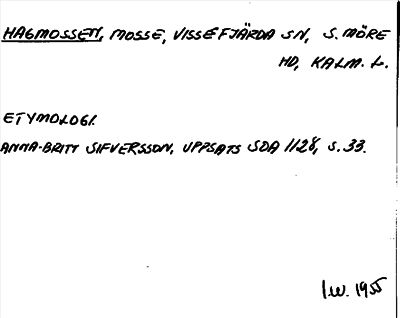 HAGMOSSEN, MOSSE, VISSEFJÄRDA SN, S. MÖRE
HD, KALM. L.
ETYMOLOGI.
ANNA-BRITT SIFVERSSON, UPPSATS SDA 1128, S. 33.
I.W. 1955